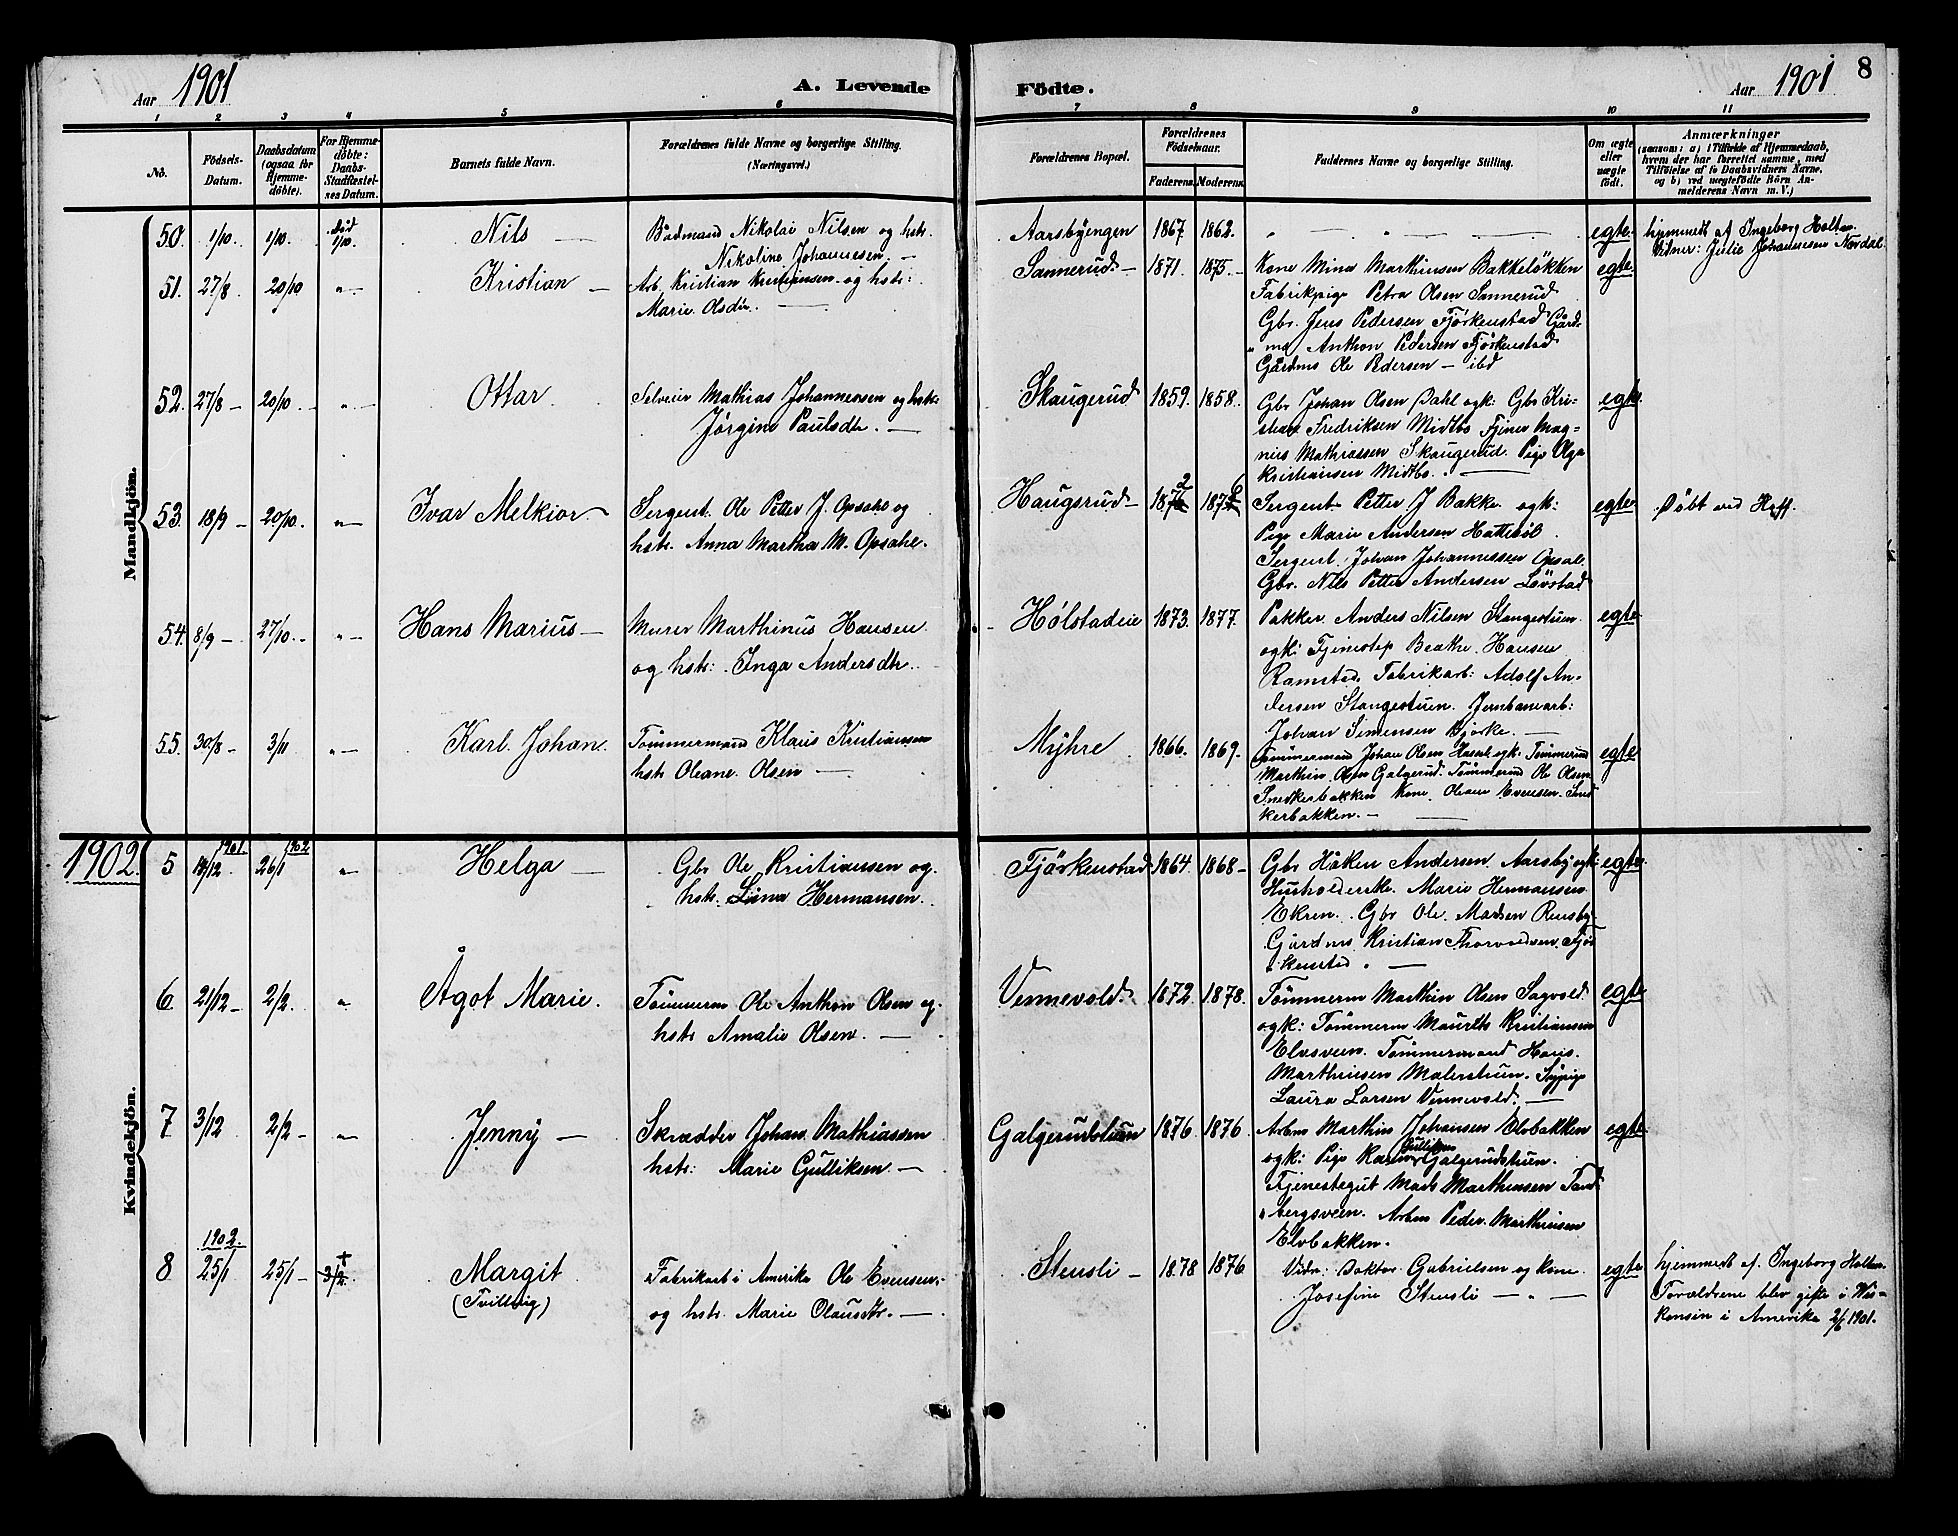 Aar 1901
A. Levende
Födte.
Aar 1901
8
1 2 3 4 5 6 7 8 9 10 11
No.
Födsels-
Datum.
Daabsdatum
(ogsaa for
Hjemme-
döbte).
For Hjemme-
döbte:
Daabs-
Stadfæstel-
ses Datum.
Barnets fulde Navn.
Forældrenes fulde Navne og borgerlige Stilling.
(Næringsvei.)
Forældrenes Bopæl.
Forældrenes
Födselsaar.
Faderens. Moderens.
Faddernes Navne og borgerlige Stilling.
Om ægte
eller
uægte
födt.
Anmærkninger
(saasom: a) i Tilfælde af Hjemmedaab,
hvem der har forrettet samme, med
Tilföielse af to Daabsvidners Navne,
og b) ved uægtefödte Börn An-
melderens Navn m. V.)
Mandkjön.
50. 1/10. 1/10. död
1/10.
Nils —
Baadmand Nikolai Nilsen og hstr.
Nikoline Johannesen. —
Aarsbyengen 1867. 1862.
egte.
hjemmedt af Ingeborg Holten.
Vitner: Julie Johannesen Nordal.
51. 27/8 20/10 "—
Kristian —
Arb. Kristian Kristiansen og hstr:
Marie Olsdtr. —
Sannerud — 1871. 1875. —
Kone Mina Marthinsen Bakkeløkken
Fabrikpige Petra Olsen Sannerud
Gbr. Jens Pedersen Fjørkenstad Gård-
md Anthon Pedersen Fjørkenstad
Gårdms Ole Pedersen — ibd
egte.
52. 27/8 — 20/10. — "—
Ottar.
Selveier Mathias Johannessen og hstr:
Jørgine Paulsdtr. —
Skaugerud 1859. 1858.
Gbr Johan Olsen Dahl ogk: Gbr Kri-
stian Fredriksen Midtbo Tjener Mag-
nus Mathiassen Skaugerud. Pige Olga
Kristiansen Midtbo. —
egte.
53. 18/9 — 20/10. "—
Ivar Melkior. —
Sergent. Ole Petter J. Opsahl og
hstr. Anna Martha M. Opsahl.
Haugsrud —
Sergent Petter J Bakke ogk:
Pige Marie Andersen Hattebøl.
Sergent. Johan Johannessen Opsal.
Gbr. Nils Petter Andersen Løvstad
egte
Döbt ved Hoff.
54. 8/9 — 27/10. — "—
Hans Marius —
Murer Marthinus Hansen
og hstr: Inga Andersdtr.
Hølstadeie 1873. 1877.
Pakker Anders Nilsen Stangestuen
ogk: Tjenestep Beathe Hansen
Ramstad. Fabrikarb: Adolf An-
dersen Stangestuen. Jernbanearb:
Johan Simensen Bjørke. —
egte
55. 30/8 — 3/11 "—
Karl. Johan.
Tømmermand Klaus Kristiansen
hstr Oleane. Olsen —
Myhre. 1866. 1869.
Tømmermand Johan Olsen ogk: Tømmermd
Marthin Olsen Galgerud. Tømmermd Ole Olsen
Snedkerbakken Kone Oleane Evensen. Sned
kerbakken. —
egte
1902.
Kvindekjön.
5 1901. 1902.
26/1 "
Helga —
Gbr Ole Kristiansen og
hstr. Hermansen.
Fjørkenstad 1864. 1868 —
Gbr Håken Andersen Aarsby ogk:
Husholderske. Marie Hermansen
Ekren. Gbr Ole Madsen Rensby.
Gårdms Kristian Thorvaldsen Fjør-
kenstad. —
egte
6 21/12 — 2/2. "
Ågot Marie.
Tømmerm Ole Anthon Olsen og
hstr Amalie Olsen. —
Vennevold. 1872. 1878.
Tømmerm Marthin Olsen Sagvold
ogk: Tømmerm Maurits Kristiansen
Elvsveen. Tømmermand Hans.
Marthinsen Malerstuen. Sypige
Laura Larsen Vennevold. —
egte
7 3/12 2/2 — "—
Jenny —
Skrædder Johan Mathiassen
hstr: Marie Gulliksen —
Galgerudstuen 1876. 1876
Arbm Marthin Johansen Elvbakken
Gulliksen
ogk: Pige Karine Galgerudstuen.
Tjenestegut Mads Marthinsen Sand-
bergsveen. Arbm Peder Marthinsen
Elvbakken.
egte
8 1902.
25/1 25/1 — +
3/2.
Margit.
(Tvilling)
Fabrikarb i Amerika Ole Evensen
og hstr. Marie Olausdtr. —
Stensli — 1878 1876
Vidn: Doktor Gabrielsen og Kone.
Josefine Stensli — " —
egte
hjemmedt af. Ingeborg Holten.
Forældrene blev gifte i Wis-
konsin i Amerika 2/6 1901.